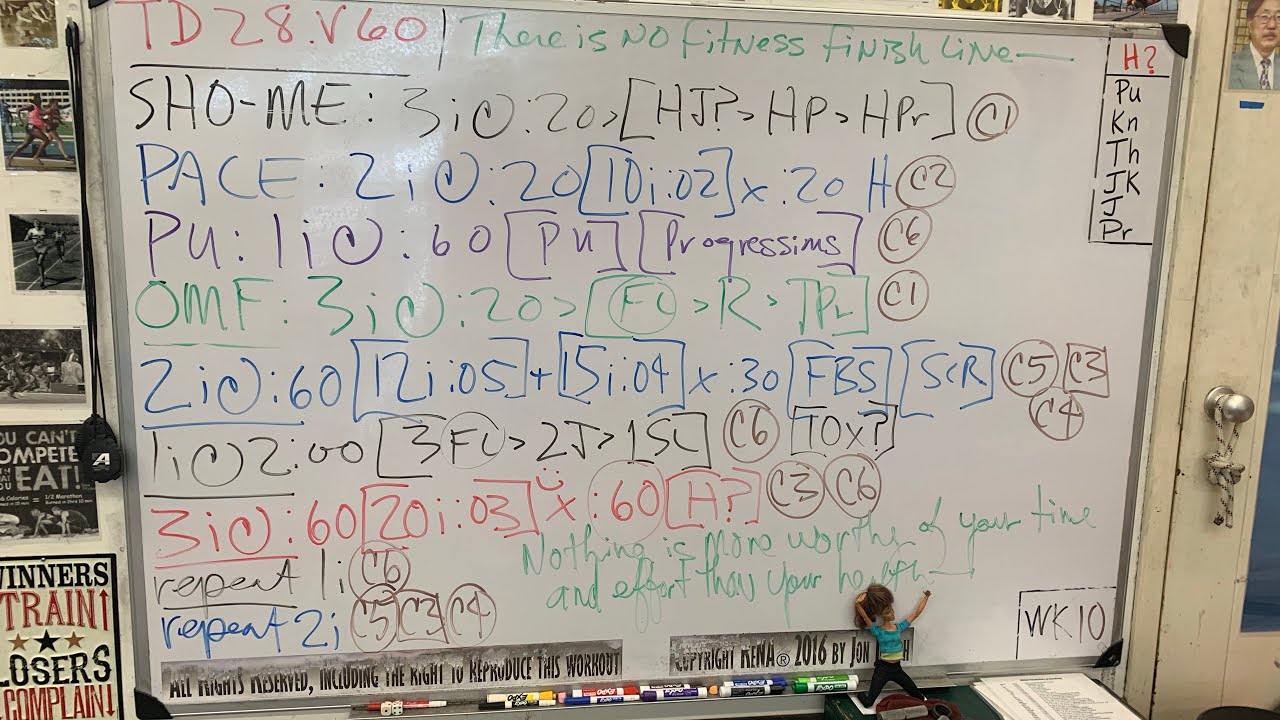 TD 28.V60 | There is NO Fitness Finish Line
H?
Pu
Kn
Th
JK
J
Pr
SHO-ME: 3i@:20>[HJ?>HP>HPr] C1
PACE: 2i@:20[10i:02]x:20 H C2
PU: 1i@:60[PU][Progressions] C6
OMF: 3i@:20>[FL>R>JPr] C1
2i@:60[12i:05]+[15i:04]x:30[FBS][SCR] C5 C3
C4
1i@2:00[3FL>2J>1SL] C6 [TOx?]
3i@:60[20i:03]x:60[H?] C3 C6
Nothing is more worthy of your time
and effort than your health
repeat 1i C6
repeat 2i C5 C3 C4
WK 10
ALL RIGHTS RESERVED, INCLUDING THE RIGHT TO REPRODUCE THIS WORKOUT
COPYRIGHT RENA® 2016 BY JON
YOU CAN'T
COMPETE
EAT!
WINNERS
TRAIN!
LOSERS
COMPLAIN!
EXPO